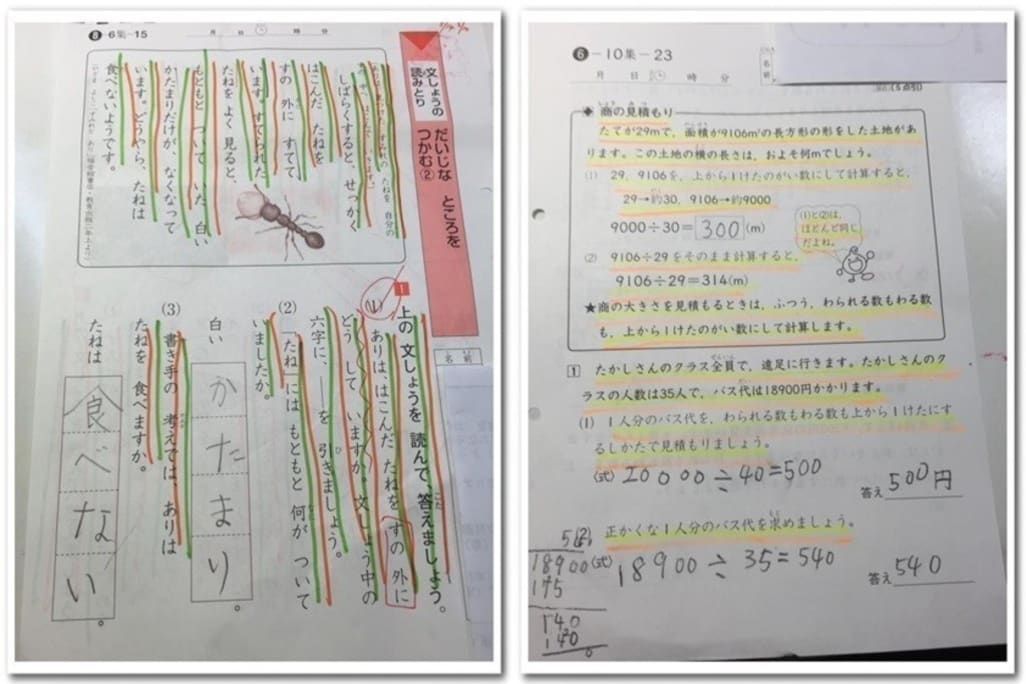 8-6集-15
月 日 時 分
文しょうの
読みとり
だいじな ところを
つかむ②
しばらくすると、せっかく
はこんだ たねを
すの 外に すてて
います。すてられた
たねを よく 見ると、
もともと ついて いた 白い
かたまりだけが、なくなって
います。どうやら、たねは
食べないようです。
名前
1 上の 文しょうを 読んで、答えましょう。
(1) ありは、はこんだ たねを すの 外に
どう して いますか。文しょう中の
六字に、──を 引きましょう。
(2) たね には もともと 何が ついて
いましたか。
白い かたまり。
(3) 書き手の 考えでは、ありは
たねを 食べますか。
たねは 食べない。
6-10集-23
月 日 時 分
名前
◆ 商の見積もり
たてが29mで、面積が9106m²の長方形の形をした土地があ
ります。この土地の横の長さは、およそ何mでしょう。
(1) 29、9106を、上から1けたのがい数にして計算すると、
29→約30、9106→約9000
9000÷30=300(m)
(1)と(2)は、
ほとんど同じ
だよね。
(2) 9106÷29をそのまま計算すると、
9106÷29=314(m)
★商の大きさを見積もるときは、ふつう、わられる数もわる数
も、上から1けたのがい数にして計算します。
1 たかしさんのクラス全員で、遠足に行きます。たかしさんのク
ラスの人数は35人で、バス代は18900円かかります。
(1) 1人分のバス代を、わられる数もわる数も上から1けたにす
るしかたで見積もりましょう。
(式) 20000÷40=500
答え 500円
(2) 正かくな1人分のバス代を求めましょう。
(式) 18900÷35=540
答え 540
5
18900
175
140
140
0